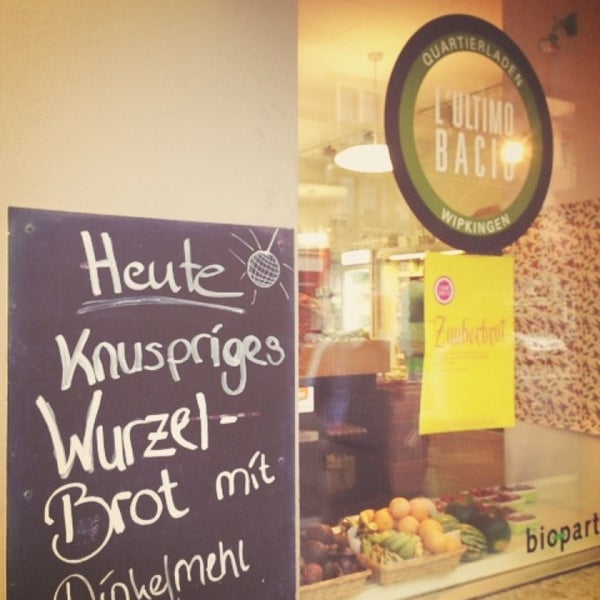 Heute
Knuspriges
Wurzel-
Brot mit
Dinkelmehl
QUARTIERLADEN
L'ULTIMO
BACIO
WIPKINGEN
"Zauberbrot"
biopart